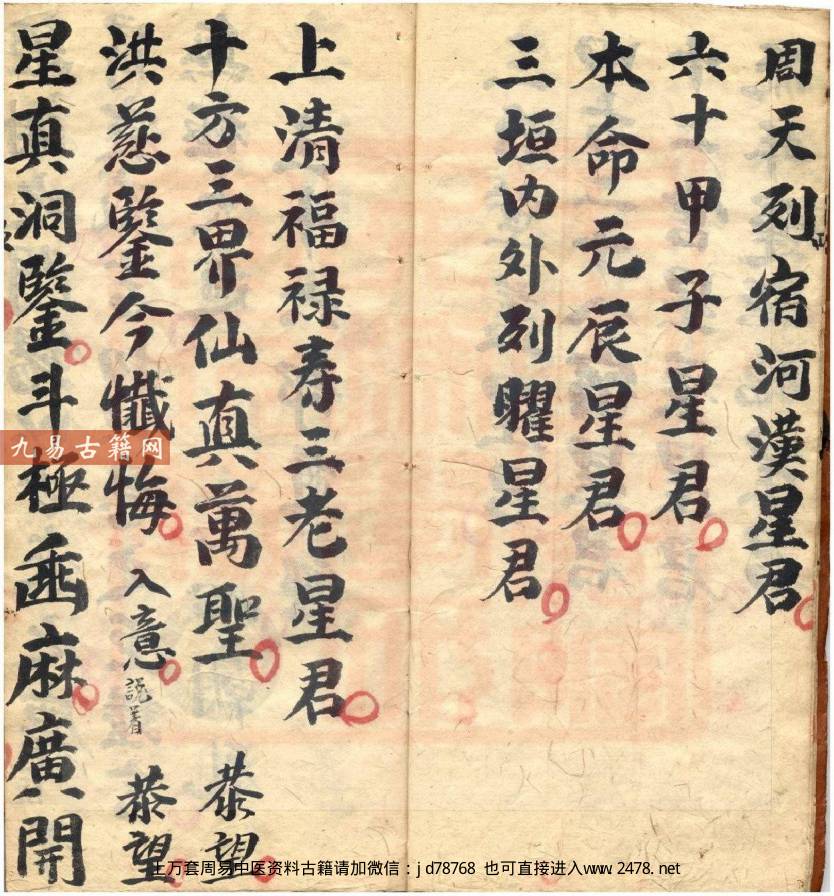 周天列宿河漢星君
六十甲子星君
本命元辰星君
三垣内外列曜星君
上清福禄寿三老星君
十方三界仙真萬聖 恭望
洪慈鑒今懺悔 入意 説着 恭望
星真洞鑒斗極垂麻廣開
九易古籍网
上万套周易中医资料古籍请加微信：jd78768 也可直接进入www.2478.net